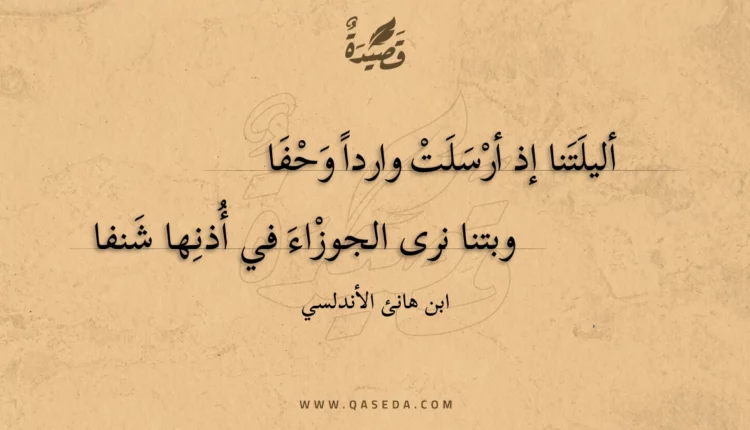 قَصِيدَةٌ
أليلَتَنا إذ أرْسَلَتْ وارداً وَحْفَا
وبتنا نرى الجوزْاءَ في أُذنِها شَنفا
ابن هانئ الأندلسي
WWW.QASEDA.COM